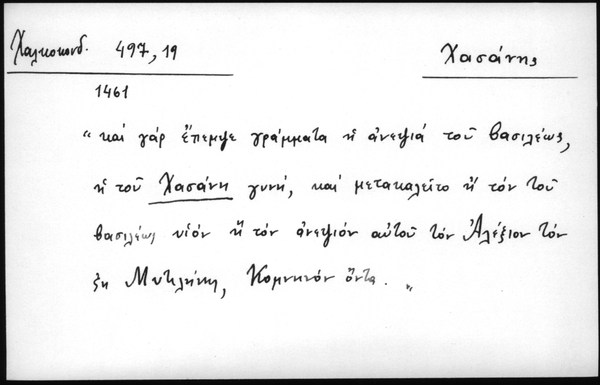 Χαλκοκονδ. 497,19
Χασάνης
1461
" καί γάρ ἔπεμψε γράμματα ἡ ἀνεψιά τοῦ βασιλέως,
ἡ τοῦ Χασάνη γυνή, καί μετακαλεῖτο ἤ τόν τοῦ
βασιλέως υἱόν ἤ τόν ἀνεψιόν αὐτοῦ τόν Ἀλέξιον τόν
ἐκ Μυτιλήνης, Κομνηνόν ὄντα. "